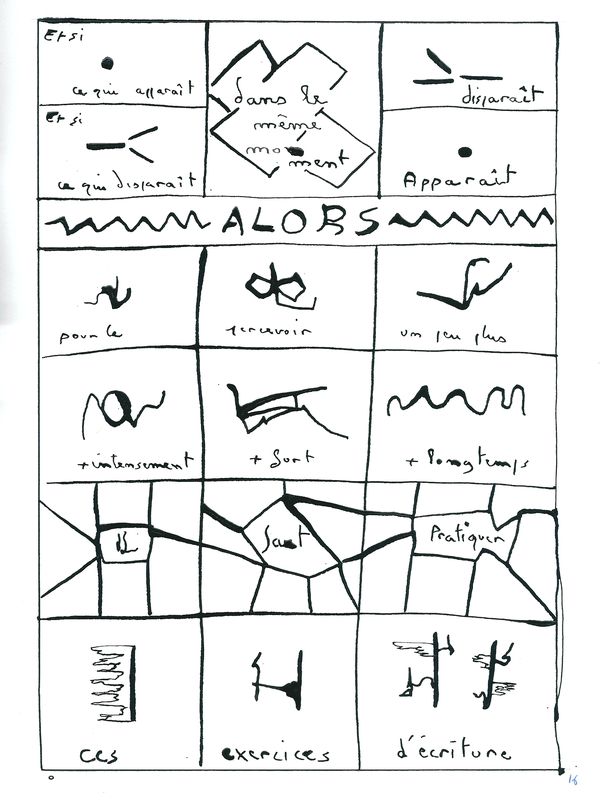 Et si
ce qui apparaît
Et si
ce qui disparaît
dans le
même
moment
disparaît
Apparaît
ALORS
pour le
percevoir
un peu plus
+ intensement
+ fort
+ longtemps
IL
faut
Pratiquer
ces
exercices
d'écriture
16